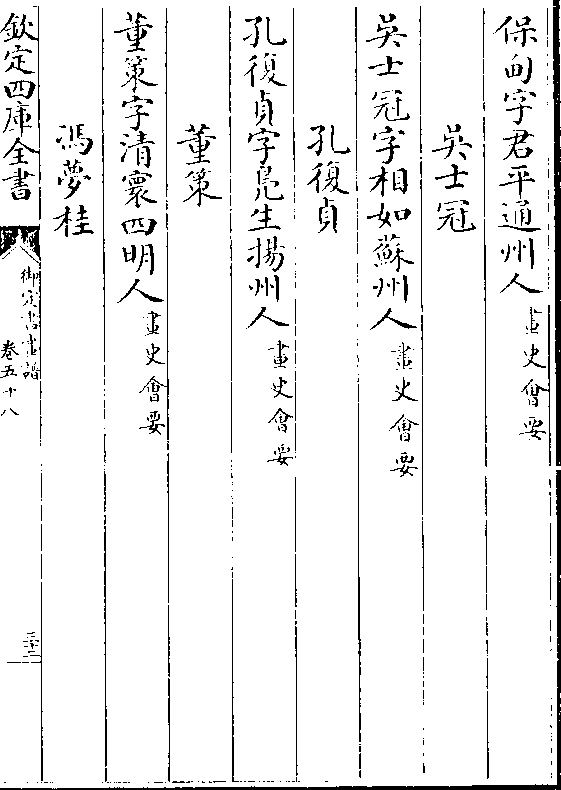 保甸字君平通州人畫史會要
吳士冠
吳士冠字相如蘇州人畫史會要
孔復貞
孔復貞字鳧生揚州人畫史會要
董策
董策字清寰四明人畫史會要
馮夢桂
欽定四庫全書
御定書畫譜
卷五十八
三十二